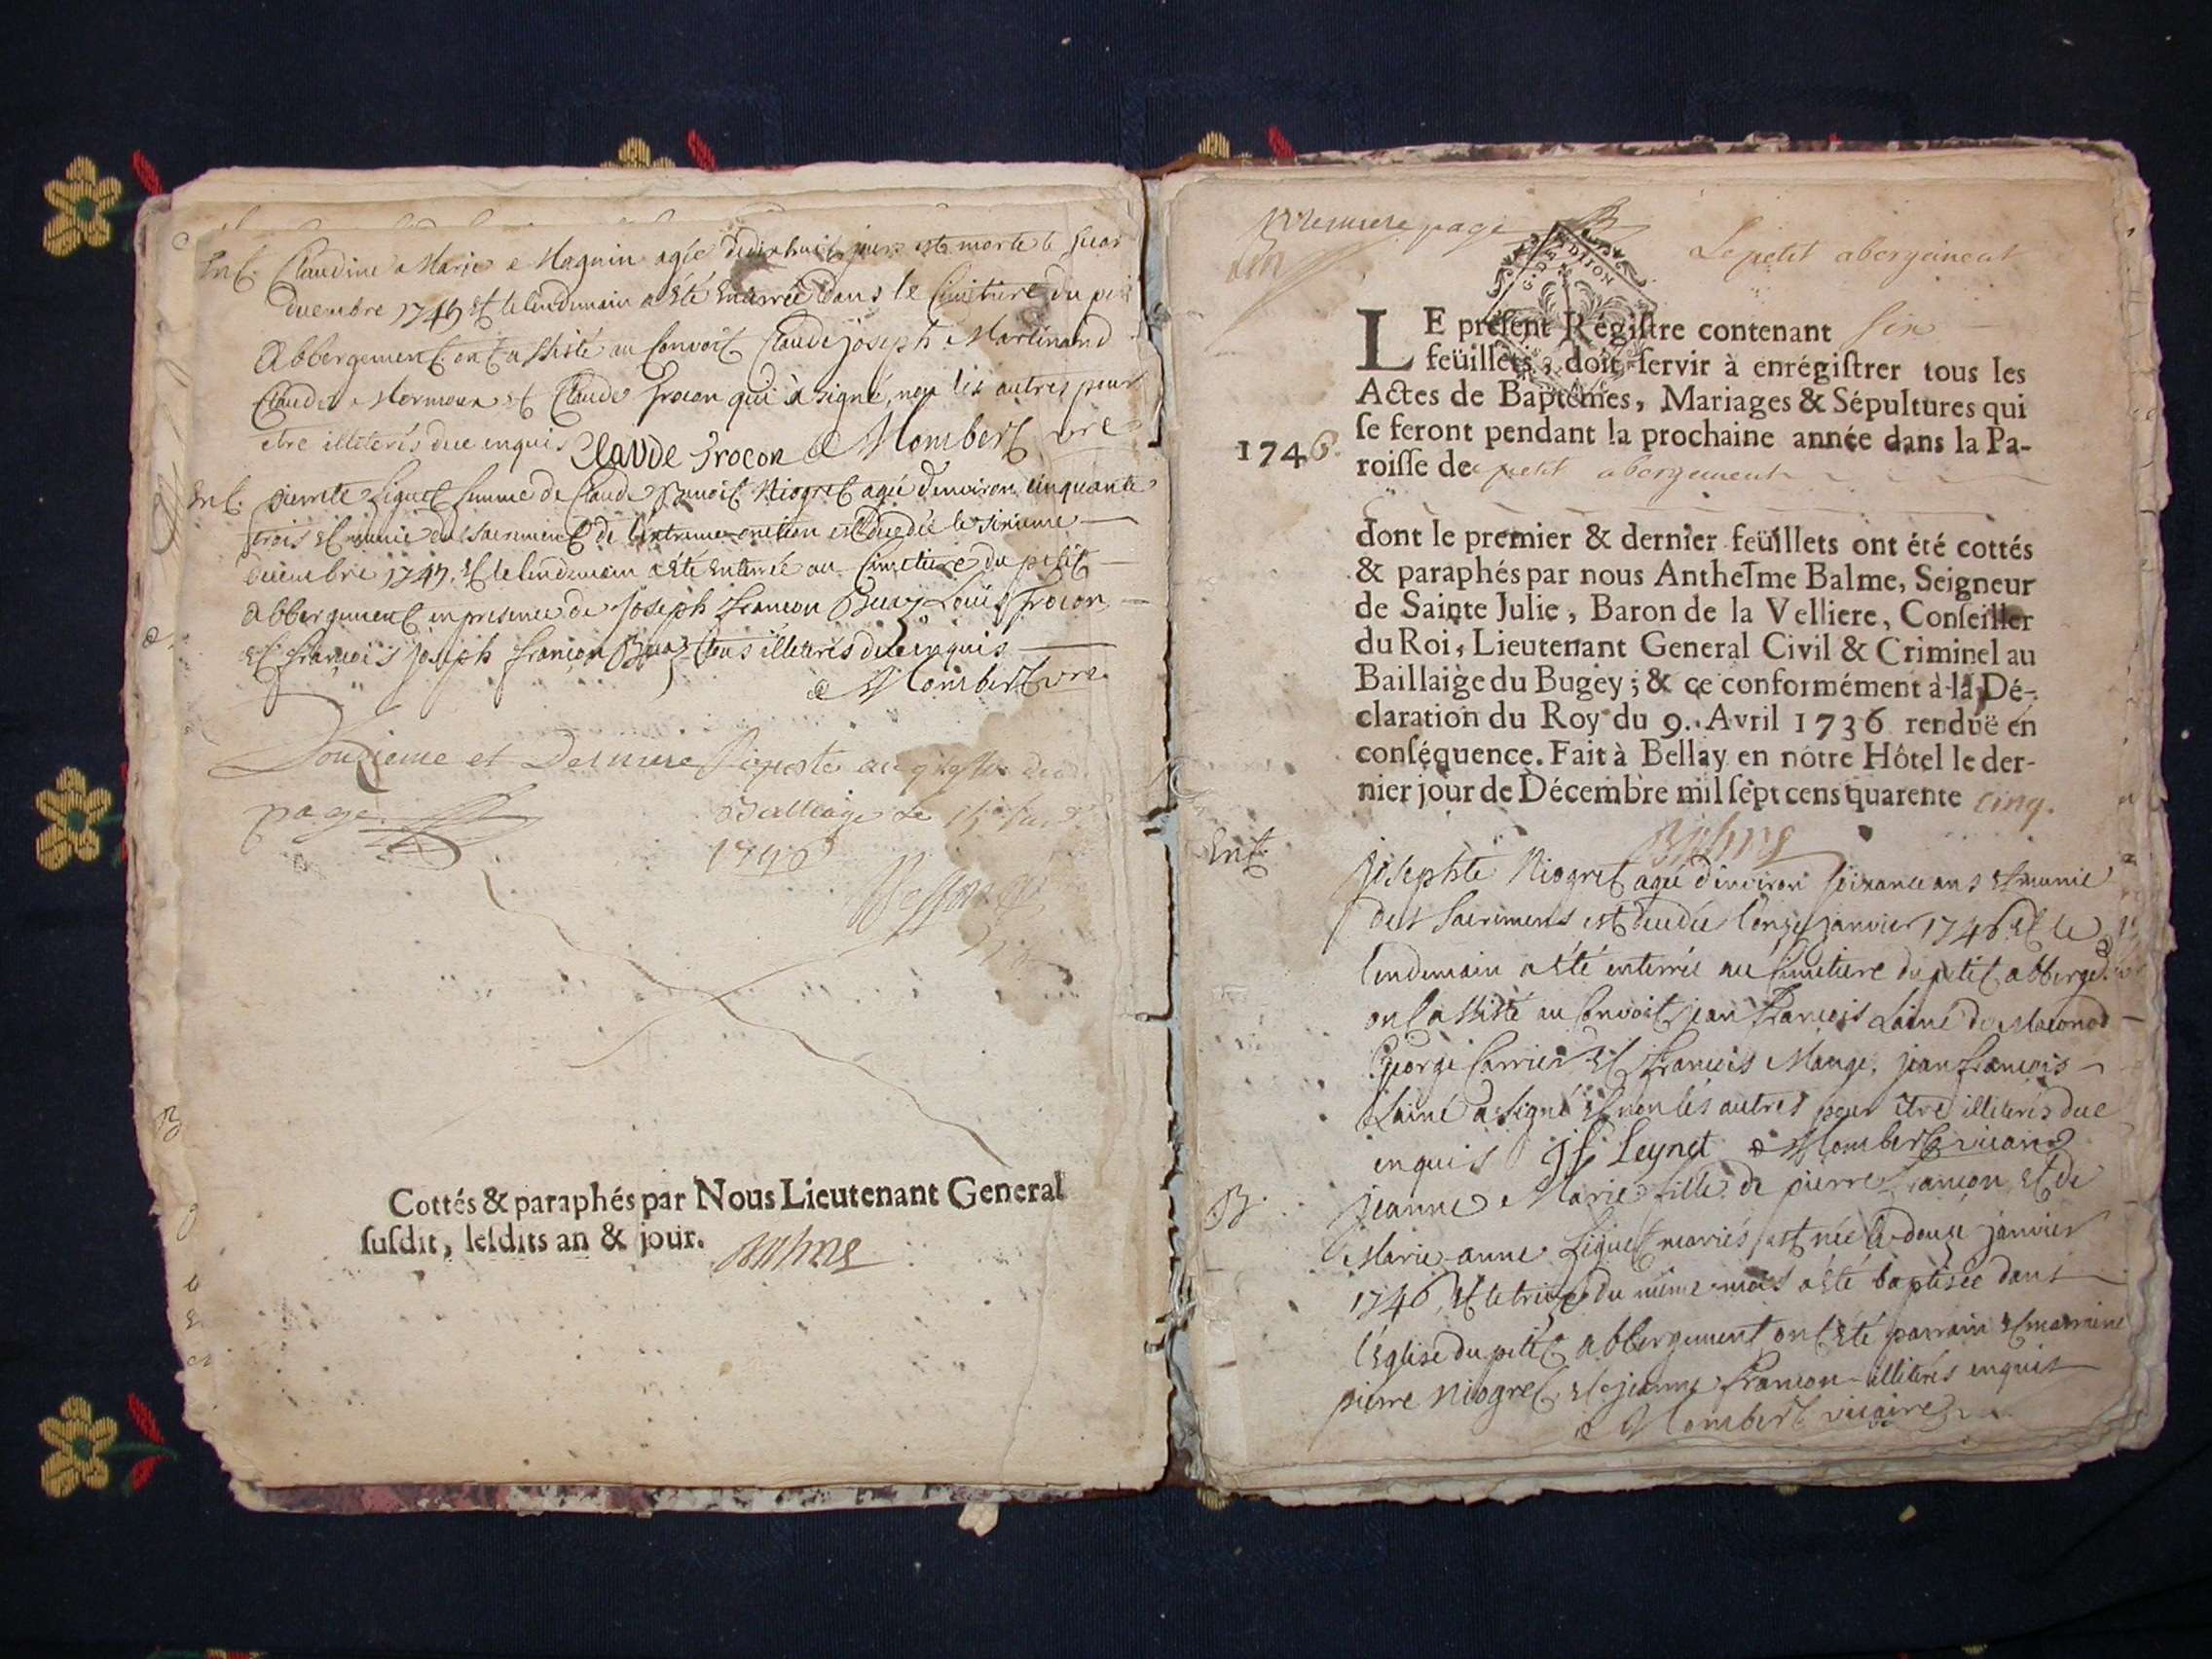 Ent. Claudine Marie Magnin agée dedixhuit jours est morte le
decembre 1745 et le lendemain a été enterrée dans le Cimetiere du petit
Abbergement. ont assisté au Convoit Claude joseph Martinand
Claude Mermoux et Claude Frocon qui à signé, non les autres pour
etre illiterés due enquis Claude Frocon Mombert vre
Ent. pierrete Liguet femme de Claude Benoit Niogret agée denviron cinquante
trois et munie du sacrement de l'extreme onction est decedée le sixieme
decembre 1745. et le lendemain a été enterrée au Cimetiere du petit
abbergement en presence de joseph françon Louis Frocon
et françois joseph françon tous illiterés due enquis
Mombert vre.
Douzieme et Derniere
page
Balliage le
1746
Cottés & paraphés par Nous Lieutenant General
ſuſdit, leſdits an & jour.
premiere page
Le petit abergement
LE preſent Régiſtre contenant six
feüillets, doit ſervir à enrégiſtrer tous les
Actes de Baptêmes, Mariages & Sépultures qui
ſe feront pendant la prochaine année dans la Pa-
1746.
roiſſe de petit abergement
dont le premier & dernier feüillets ont été cottés
& paraphés par nous Anthelme Balme, Seigneur
de Sainte Julie, Baron de la Velliere, Conſeiller
du Roi, Lieutenant General Civil & Criminel au
Baillaige du Bugey; & ce conformément à la Dé-
claration du Roy du 9. Avril 1736 renduë en
conſéquence. Fait à Bellay en nôtre Hôtel le der-
nier jour de Décembre mil ſept cens quarente cinq.
Ent. josephte Niogret agée d'environ soixante ans et munie
des sacremens est decedée l'onze janvier 1746 et le
lendemain a été enterrée au Cimetiere du petit abberget.
ont assisté au Convoit jean François Lainé de Maconod
George Carrier et françois Mange, jean françois
Lainé a signé et non les autres pour être illiterés due
enquis jf Leynet Mombert vicaire
B. jeanne Marie fille de pierre françon et de
Marie anne Liguet mariés est née le douze janvier
1746, et le treize du même mois a été baptisée dans
l'Eglise du petit abbergement ont été parrain et marraine
pierre Niogret et jeanne françon illiterés enquis
Mombert vicaire